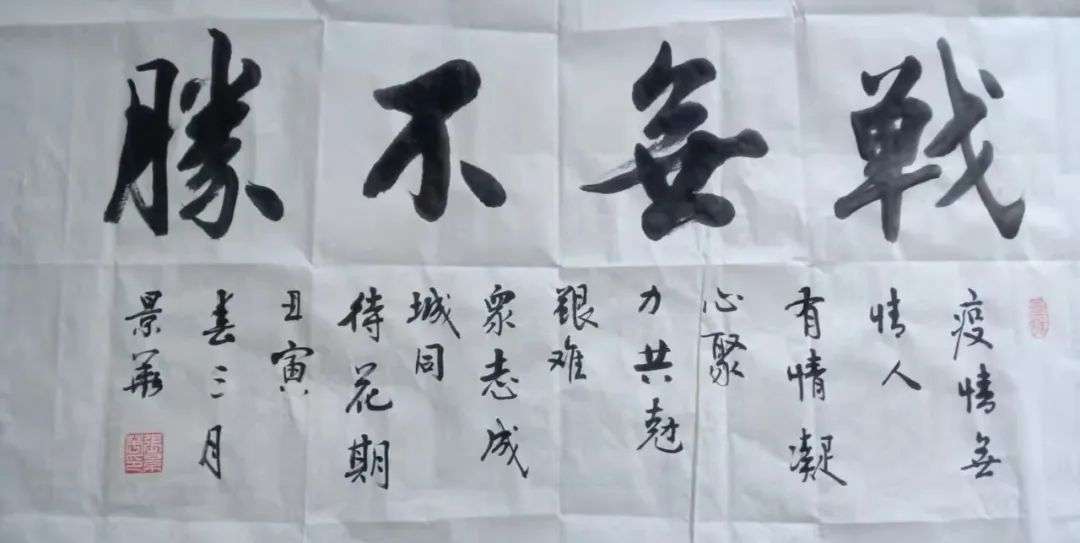 戦無不勝
疫情無
情人
有情凝
心聚
力共尅
艱难
衆志成
城同
待花期
丑寅
春三月
景華